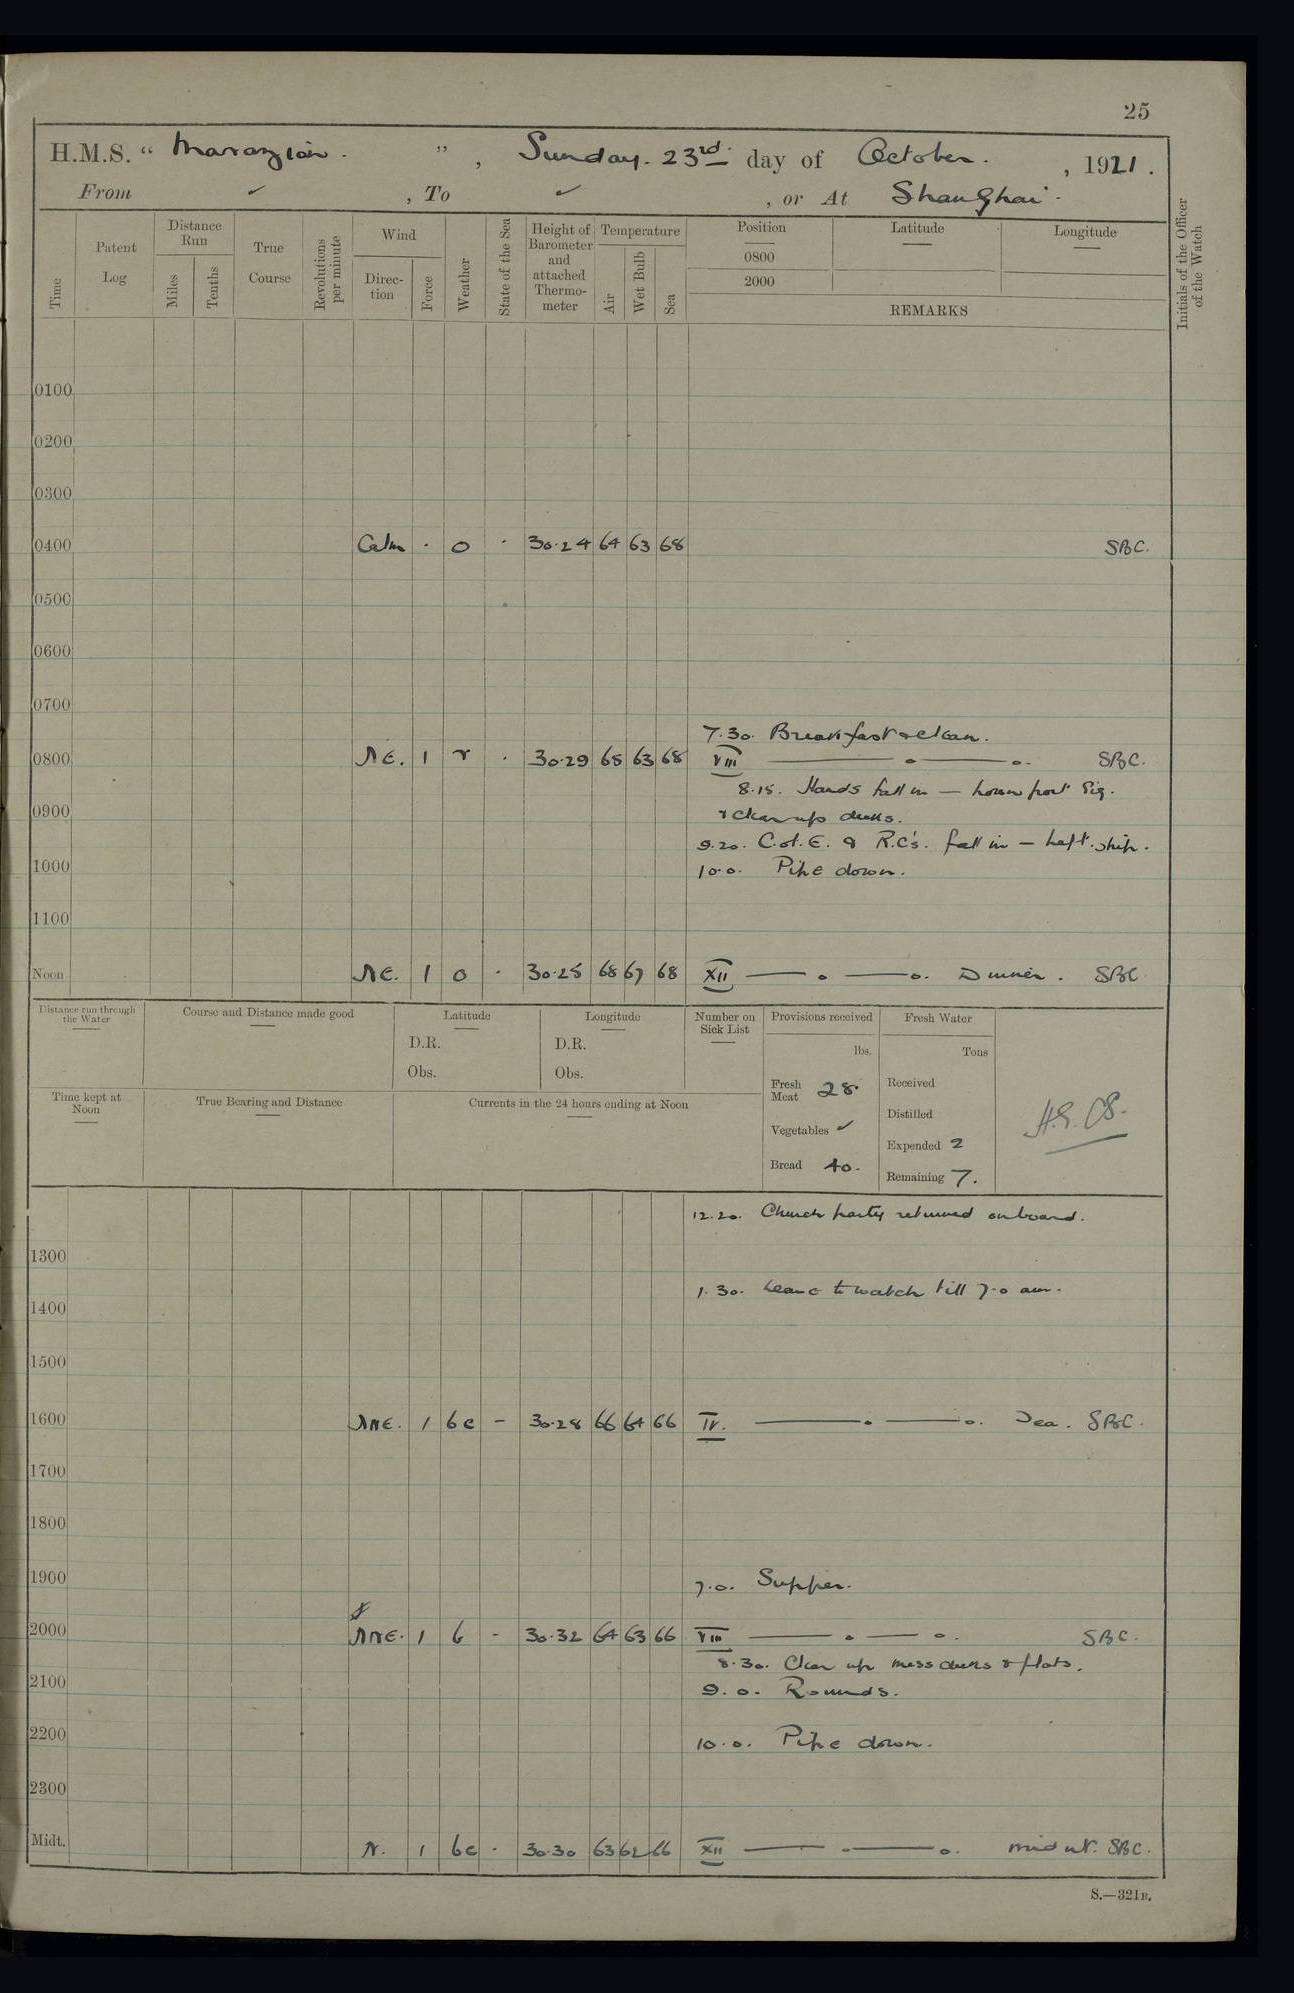 25
H.M.S. “ Marazion. ” , Sunday. 23rd. day of October. , 1921.
From ✓ , To ✓ , or At Shanghai.
Time
Patent Log
Distance Run
Miles
Tenths
True Course
Revolutions per minute
Wind
Direction
Force
Weather
State of the Sea
Height of Barometer and attached Thermometer
Temperature
Air
Wet Bulb
Sea
Position
0800
2000
Latitude
Longitude
REMARKS
Initials of the Officer of the Watch
0100
0200
0300
0400 Calm · o · 30.24 64 63 68 SBC.
0500
0600
0700
7.30. Breakfast & clean.
0800 NE. 1 r · 30.29 65 63 68 VIII — o — o. SBC.
8.15. Hands fall in —
& clear up decks.
0900
9.20. C. of E. & R.C's. fall in — left ship.
1000
10.0. Pipe down.
1100
Noon NE. 1 o · 30.25 68 67 68 XII — o — o. Dinner. SBC
Distance run through the Water
Course and Distance made good
Latitude
D.R.
Obs.
Longitude
D.R.
Obs.
Number on Sick List
Provisions received
lbs.
Fresh Meat 28.
Vegetables ✓
Bread 40.
Fresh Water
Tons
Received
Distilled
Expended 2
Remaining 7.
Time kept at Noon
True Bearing and Distance
Currents in the 24 hours ending at Noon
12.20. Church party returned onboard.
1300
1.30. Leave to watch till 7.0 am.
1400
1500
1600 NNE. 1 bc – 30.28 66 64 66 IV. — o — o. Tea. SBC.
1700
1800
1900
7.0. Supper.
2000 NNE. 1 b – 30.32 64 63 66 VIII — o — o. SBC.
8.30. Clear up mess decks & flats.
2100
9.0. Rounds.
2200
10.0. Pipe down.
2300
Midt. N. 1 bc · 30.30 63 62 66 XII — o — o. Midnt. SBC.
S.—321B.